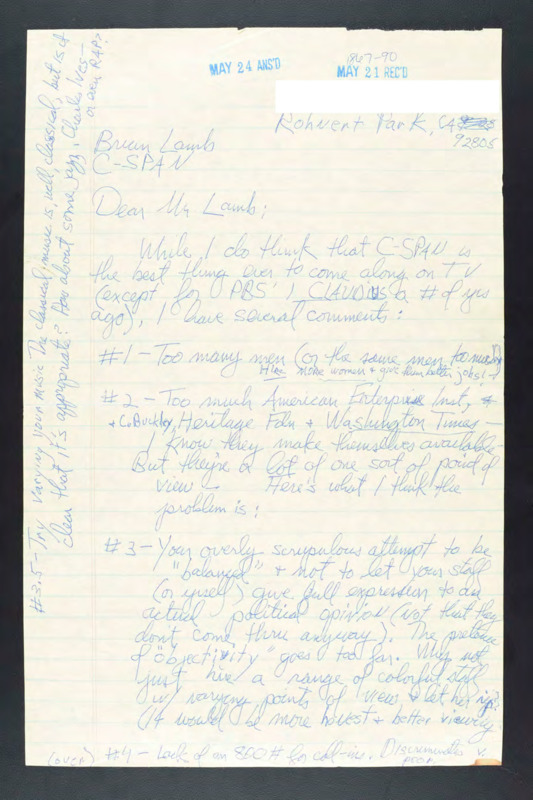 MAY 24 ANS'D
867-90
MAY 21 REC'D
Rohnert Park, CA
92805
Brian Lamb
C-SPAN
Dear Mr Lamb;
While I do think that C-SPAN is
the best thing ever to come along on TV
(except for PBS' I CLAUDIUS a # of yrs
ago), I have several comments:
#1 - Too many men (or the same men too many)
Hire more women & give them better jobs!
#2 - Too much American Enterprise Inst,
& Co Buckley, Heritage Fdn & Washington Times -
I know they make themselves available
But they're a lot of one sort of point of
view - Here's what I think the
problem is:
#3 - Your overly scrupulous attempt to be
"balanced" & not to let your staff
(or yrself) give full expression to an
actual political opinion (not that they
don't come thru anyway). The pretense
of "objectivity" goes too far. Why not
just hire a range of colorful staff
w/ varying points of view & let her rip?
(It would be more honest & better viewing.
(over) #4 - Lack of an 800 # for call-ins. Discriminates v.
poor
#3.5 - Try varying your music The classical music is, well, classical, but is it
clear that it's appropriate? How about some jazz, Charles Ives -
or even RAP?